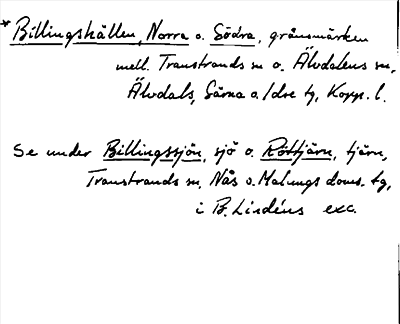 * Billingshällen, Norra o. Södra, gränsmärken
mell. Transtrands sn o. Älvdalens sn,
Älvdals, Särna o. Idre tg, Kopp. l.
Se under Billingssjön, sjö o. Röttjärn, tjärn,
Transtrands sn, Nås o. Malungs doms. tg,
i B. Lindéns exc.